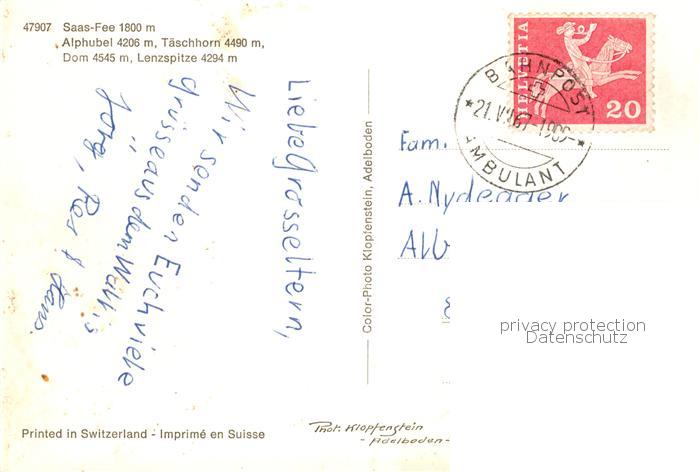 47907 Saas-Fee 1800 m
Alphubel 4206 m, Täschhorn 4490 m,
Dom 4545 m, Lenzspitze 4294 m
Liebe Grosseltern,
Wir senden Euch viele
Grüsse aus dem Wallis
Jörg, Res & Hans.
Color-Photo Klopfenstein, Adelboden
HELVETIA
20
BAHNPOST
AMBULANT
Fam.
A. Nydegger
Alb
privacy protection
Datenschutz
Printed in Switzerland - Imprimé en Suisse
Phot. Klopfenstein
- Adelboden -